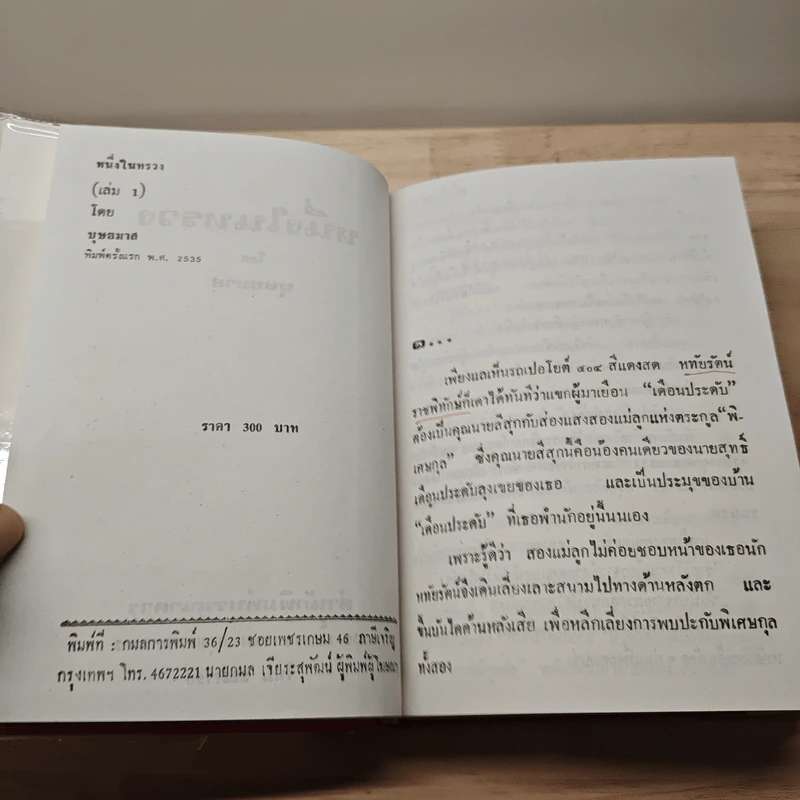 หนึ่งในทรวง
(เล่ม 1)
โดย
บุษยมาส
พิมพ์ครั้งแรก พ.ศ. 2535
ราคา 300 บาท
พิมพ์ที่ : กมลการพิมพ์ 36/23 ซอยเพชรเกษม 46 ภาษีเจริญ
กรุงเทพฯ โทร. 4672221 นายกมล เจียระสุพัฒน์ ผู้พิมพ์ผู้โฆษณา
๑...
เพียงแลเห็นรถเปอโยต์ ๔๐๔ สีแดงสด หทัยรัตน์
ราชพิทักษ์ก็เดาได้ทันทีว่าแขกผู้มาเยือน “เดือนประดับ”
ต้องเป็นคุณนายสีสุกกับส่องแสงสองแม่ลูกแห่งตระกูล“พิ-
เศษกุล” ซึ่งคุณนายสีสุกนี้คือน้องคนเดียวของนายสุทธิ์
เดือนประดับลุงเขยของเธอ และเป็นประมุขของบ้าน
“เดือนประดับ” ที่เธอพำนักอยู่นี้นนเอง
เพราะรู้ดีว่า สองแม่ลูกไม่ค่อยชอบหน้าของเธอนัก
หทัยรัตน์จึงเดินเลี่ยงเลาะสนามไปทางด้านหลังตึก และ
ขึ้นบันไดด้านหลังเสีย เพื่อหลีกเลี่ยงการพบปะกับพิเศษกุล
ทั้งสอง